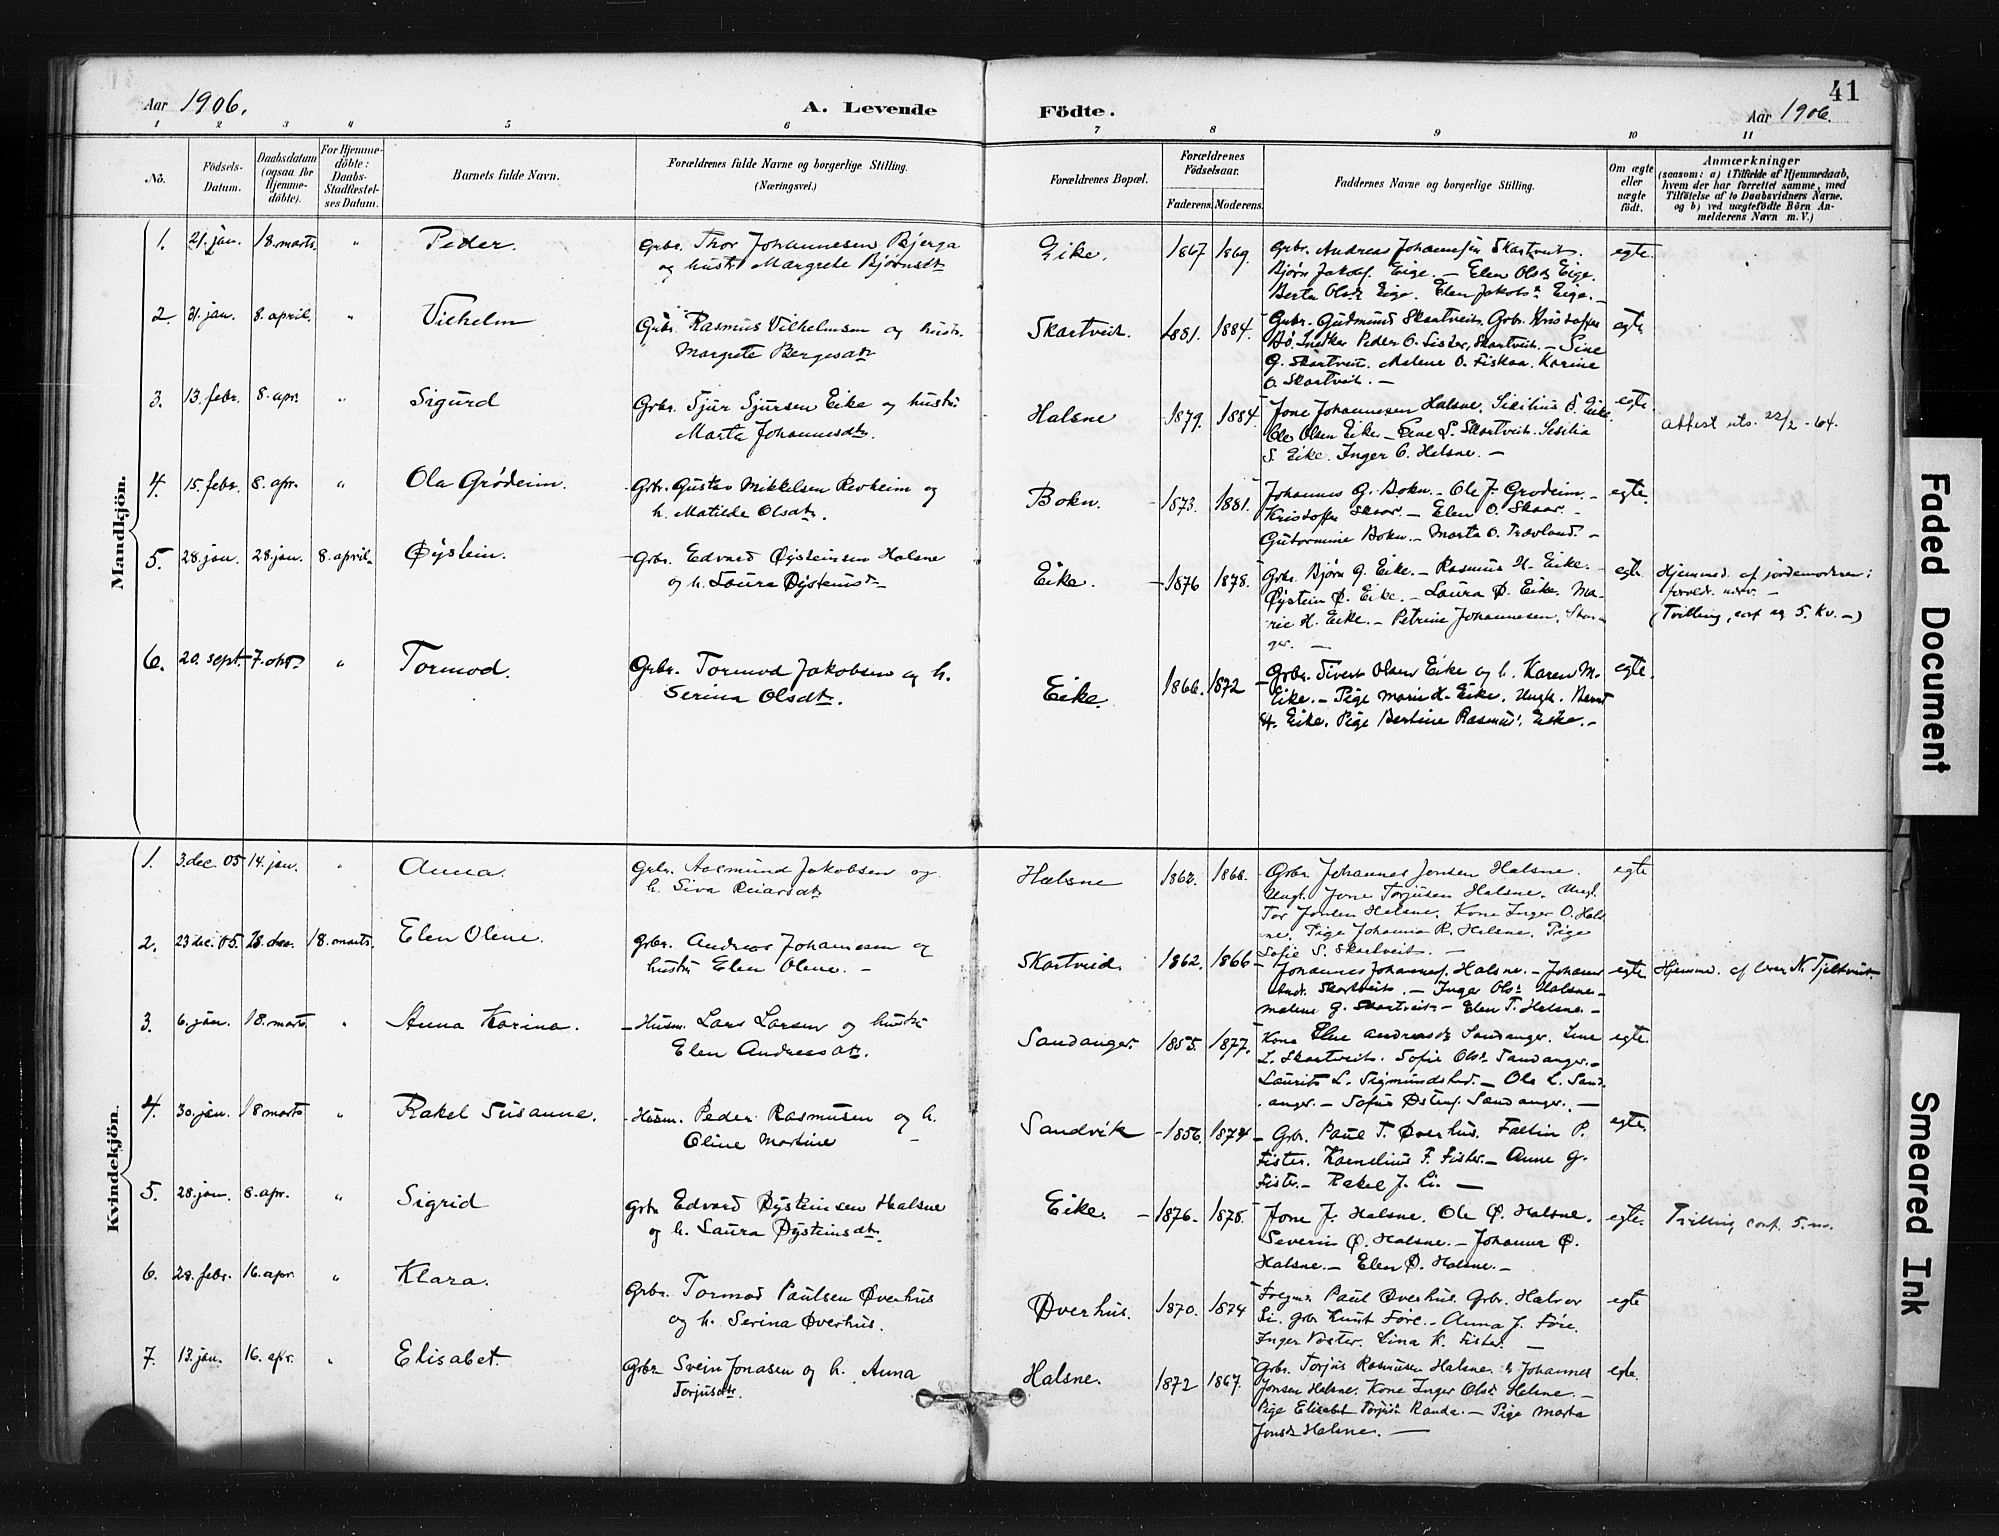 41
Aar 1906. A. Levende Födte. Aar 1906.
1 2 3 4 5 6 7 8 9 10 11
No.
Födsels-
Datum.
Daabsdatum
(ogsaa for
Hjemme-
döbte).
For Hjemme-
döbte:
Daabs-
Stadfæstel-
ses Datum.
Barnets fulde Navn.
Forældrenes fulde Navne og borgerlige Stilling.
(Næringsvei.)
Forældrenes Bopæl.
Forældrenes
Födselsaar.
Faderens. Moderens.
Faddernes Navne og borgerlige Stilling.
Om ægte
eller
uægte
födt.
Anmærkninger
(saasom: a) i Tilfælde af Hjemmedaab,
hvem der har forrettet samme, med
Tilföielse af to Daabsvidners Navne.
og b) ved uægtefödte Börn An-
melderens Navn m. V.)
Mandkjön.
1. 21. jan. 18. marts. " Peder. Grbr. Thor Johannesen Bjerga
og hustr. Margrete Bjørnsdtr
Eike. 1867 1869. Grbr. Andreas Johannesen Skartveit.
Bjørn Jakobs. Eige. — Elen Olsdr Eige.
Berta Olsdr Eige. Elen Jakobs Eige. —
egte.
2. 31. jan. 8. april. " Vilhelm Grbr. Rasmus Vilhelmsen og hustr.
Margrete Bergesdtr
Skartveit. 1881. 1884. Grbr. Gudmund Skartveit. Grbr. Kristoffer
Bø. Snekker Peder O. Fister, Skartveit. — Sine
G. Skartveit. Malene O. Fiskaa. Karine
O. Skartveit. —
egte
3. 13. febr. 8. apr. " Sigurd Grbr. Sjur Sjursen Eike og hustr.
Marta Johannesdtr.
Halsne 1879. 1884. Jone Johannesen Halsne. S. Eike
Ole Olsen Eike. — L. Skartveit.
S. Eike. Inger O. Halsne. —
egte. attest uts. 22/2 - 64.
4. 15. febr. 8. apr. " Ola Grødeim. Grbr. Gustav Mikkelsen Revheim og
h. Matilde Olsdtr.
Bokn. 1873. 1881. Johannes G. Bokn. — Ole J. Grødeim. —
Kristoffer Skaar. — Elen O. Skaar. —
Gutormine Bokn. — Marta O. Travland. —
egte.
5. 28. jan. 28. jan. 8. april. Øystein. Grbr. Edvard Øysteinsen Halsne
og h. Laura Øysteinsdtr
Eike. 1876 1878. Grbr. Bjørn G. Eike. — Rasmus H. Eike. —
Øystein Ø. Eike. — Laura Ø. Eike. Ma-
rie H. Eike. — Petrine Johannesen,
egte Hjemmed. af jordemoderen;
foreld. —
(Tvilling, conf ag 5. Kv. —)
6. 20. sept. 7. okt. " Tormod. Grbr. Tormod Jakobsen og h.
Serina Olsdtr.
Eike. 1866. 1872 Grbr. Sivert Olsen Eike og h. Karen M.
Eike. — Pige Marie H. Eike. Ungk. Bernt
H. Eike. Pige Bertine Rasmusd. Eike. —
egte.
Kvindekjön.
1. 3. dec. 05 14. jan. " Anna. Grbr. Aasmund Jakobsen og
h. Siva Reiarsdtr
Halsne 1862. 1866. Grbr. Johannes Jonsen Halsne.
Ungk. Jone Torjusen Halsne. Ungk.
Tor Jonsen Halsne. Kone Inger O. Hals-
ne. Pige Johanna R. Halsne. Pige
Sofie S. Skartveit. —
egte
2. 23 dec. 05. 28. dec. 18. marts. Elen Olene. Grbr. Andreas Johannesen og
hustr. Elen Olene. —
Skartveid. 1862. 1866 Johannes Johannes. Halsne. —
Skartveit. — Inger Olsdr Halsne. —
Malene G. Skartveit — Elen T. Halsne. —
egte Hjemmed. af lærer N. Tjeltveit.
3. 6. jan. 18. marts " Anna Karina. Husm. Lars Larsen og hustr.
Elen Andreasdtr.
Sandanger. 1855. 1877. Kone Elen Andreasdr Sandanger. Sine
L. Skartveit. Sofie Olsdr Sandanger. —
Laurits L. Sigmundstad. — Ole L. Sand-
anger. — Sofie Østens. Sandanger. —
egte.
4. 30. jan. 18 marts " Rakel Susanne. Husm. Peder Rasmusen og h.
Oline Martine —
Sandvik 1856. 1874 Grbr. Paul T. Øverhus. Faltin P.
Fister. Kornelius F. Fister. — Anne G.
Fister. — Rakel J. Li. —
egte.
5. 28. jan. 8. apr. " Sigrid Grbr Edvard Øysteinsen Halsne
og h. Laura Øysteinsdtr.
Eike. 1876. 1878. Jone J. Halsne. Ole Ø. Halsne.
Severin Ø. Halsne. — Johanna Ø.
Halsne. — Elen Ø. Halsne. —
egte. Tvilling conf. 5. m.
6. 28. febr. 16. apr. " Klara. Grbr. Tormod Paulsen Øverhus
og h. Serina Øverhus.
Øverhus. 1870. 1874 Paul Øverhus. Grbr. Halvor
Li. Grbr KnutFøre. — Anna J. Føre.
Inger Vaster. Lina K. Fister. —
egte
7. 13. jan. 16. apr. " Elisabet. Grbr Svein Jonasen og h. Anna
Torjusdtr.
Halsne. 1872 1867. Grbr. Torjus Rasmusen Halsne. Johannes
Jonsen Halsne. Kone Inger Olsdr Halsne. —
Pige Elisabet Torjusdr Randa. — Pige Marta
Jonsdr Halsne. —
egte.
Faded Document
Smeared Ink